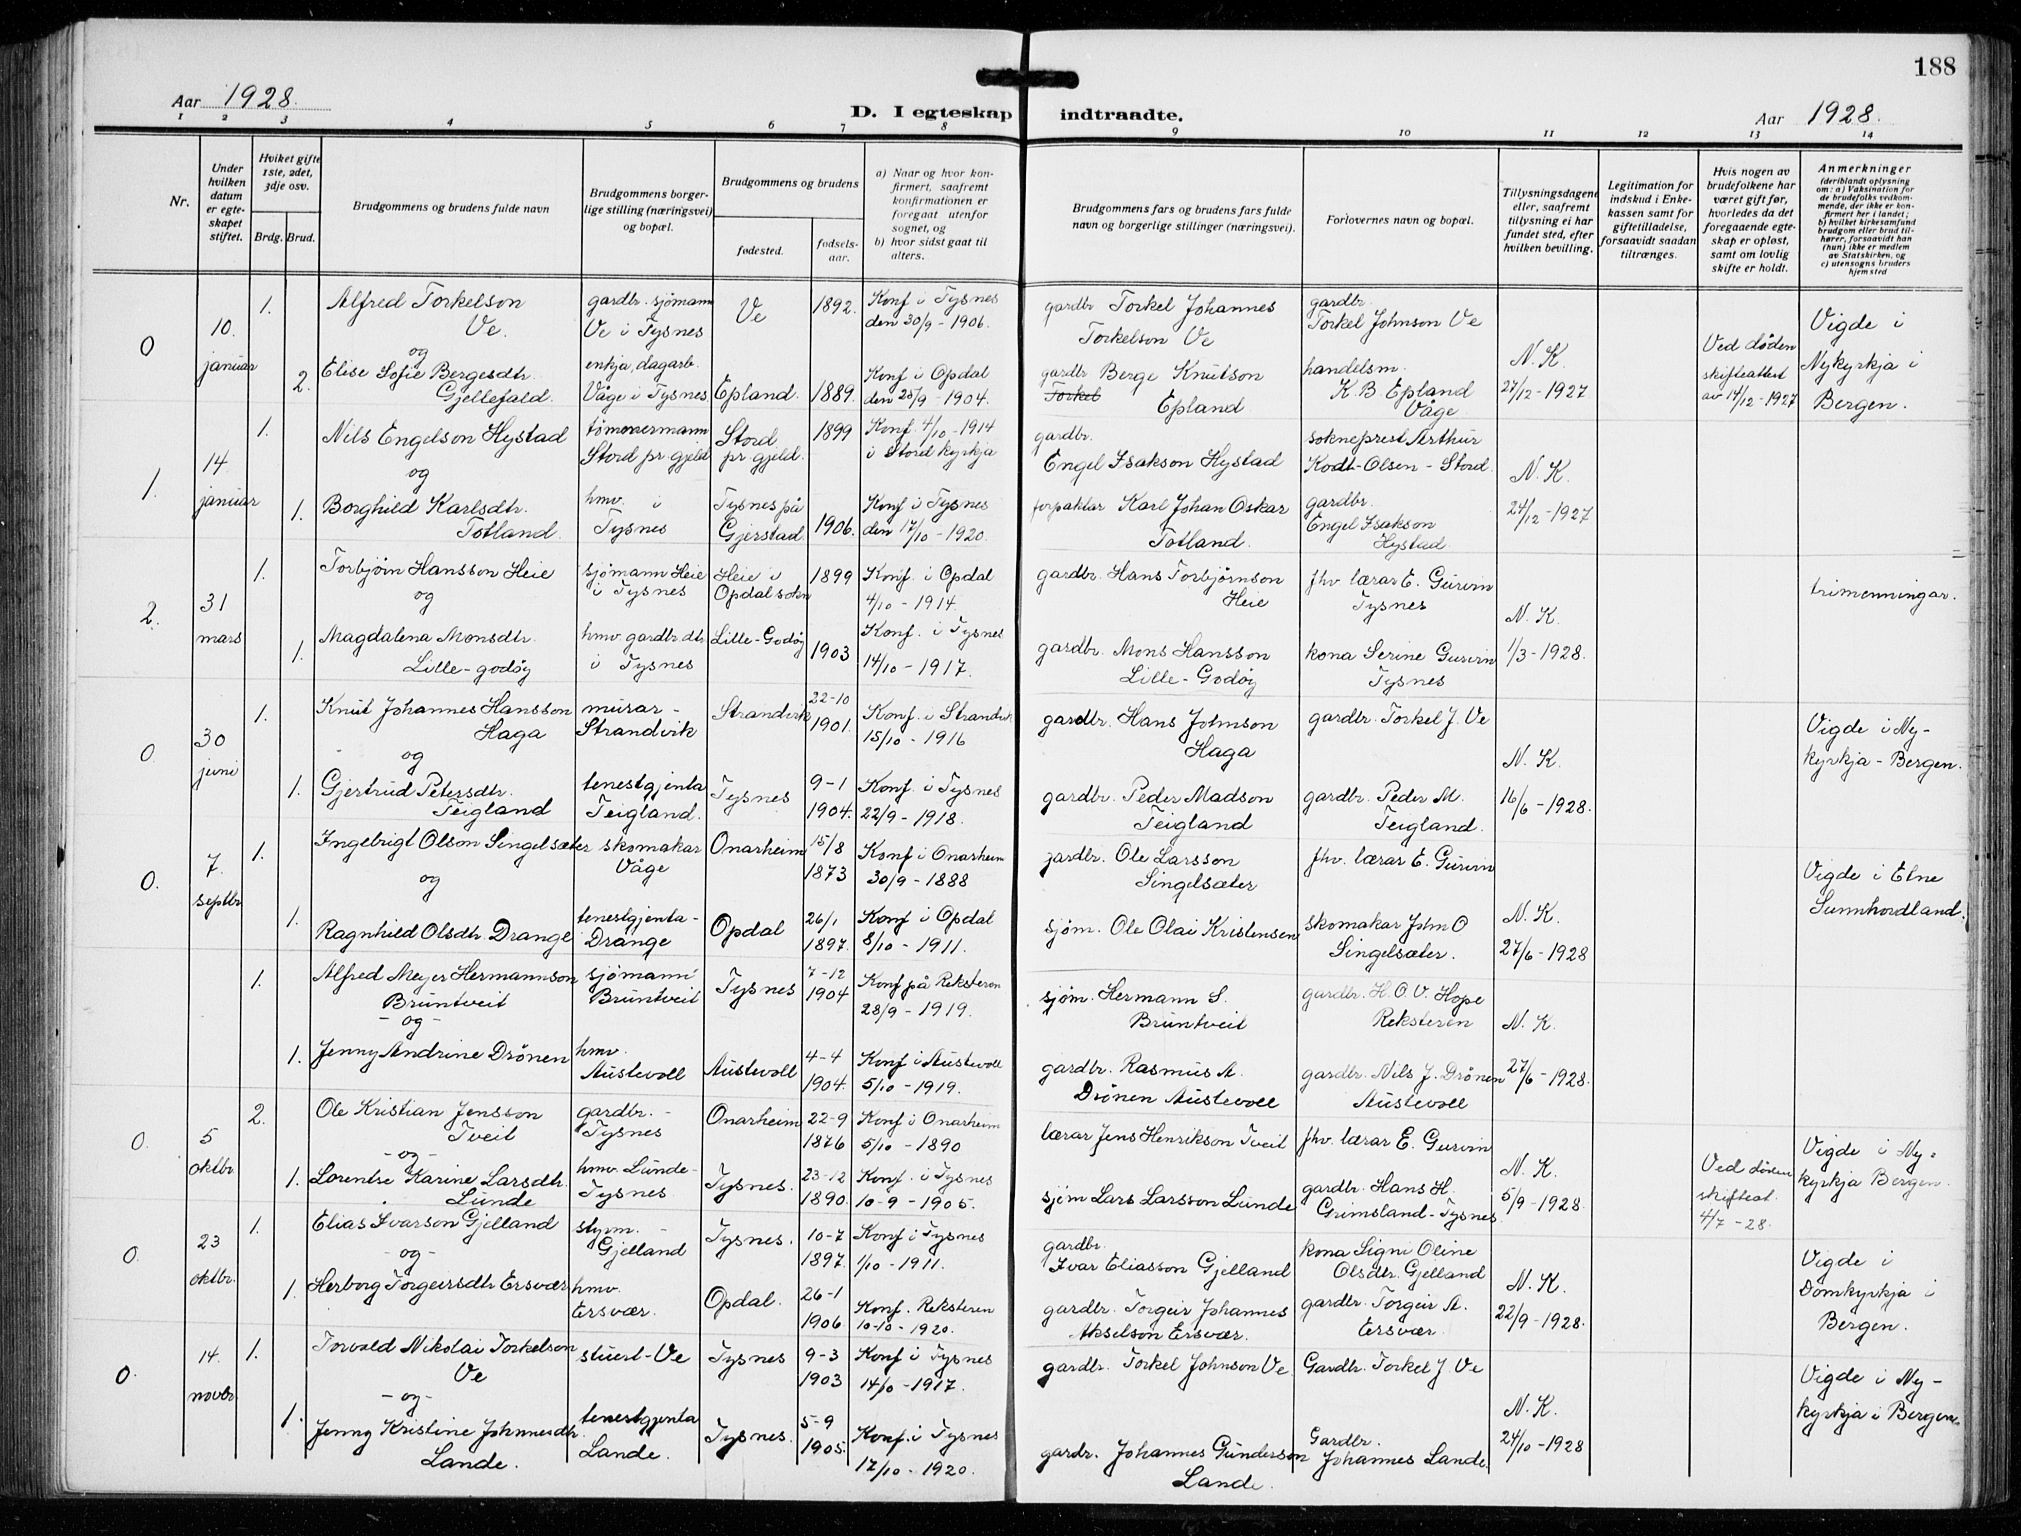 188
Aar 1928.
D. I egteskap indtraadte.
Aar 1928.
1 2 3 4 5 6 7 8 9 10 11 12 13 14
Nr.
Under hvilken datum er egteskapet stiftet.
Hviket gifte 1ste, 2det, 3dje osv.
Brdg. Brud.
Brudgommens og brudens fulde navn
Brudgommens borgerlige stilling (næringsvei) og bopæl.
Brudgommens og brudens
fødested.
fødselsaar.
a) Naar og hvor konfirmert, saafremt konfirmationen er foregaat utenfor sognet, og
b) hvor sidst gaat til alters.
Brudgommens fars og brudens fars fulde navn og borgerlige stillinger (næringsvei).
Forlovernes navn og bopæl.
Tillysningsdagene eller, saafremt tillysning ei har fundet sted, efter hvilken bevilling.
Legitimation for indskud i Enkekassen samt for giftetilladelse, forsaavidt saadan tiltrænges.
Hvis nogen av brudefolkene har været gift før, hvorledes da det foregaaende egteskap er opløst, samt om lovlig skifte er holdt.
Anmerkninger
(deriblandt oplysning om: a) Vaksination for de brudefolks vedkommende, der ikke er konfirmert her i landet; b) hvilket kirkesamfund brudgom eller brud tilhører, forsaavidt han (hun) ikke er medlem av Statskirken, og c) utensogns bruders hjemsted
0
10. januar
1.
Alfred Torkelson
Ve.
og
gardbr. sjömann
Ve i Tysnes
Ve
1892.
Konf i Tysnes
den 30/9 - 1906.
gardbr Torkel Johannes
Torkelson Ve
gardbr.
Torkel Johnson Ve
2.
Elise Sofie Bergesdtr.
Gjellefald.
enkja, dagarb.
Våge i Tysnes
Epland.
1889.
Konf i Opdal
den 25/9 - 1904.
gardbr Berge Knutson
Torkel Epland
handelsm.
K. B. Epland
Våge
N. K.
27/12 - 1927
Ved døden
skifteattest
av 14/12 - 1927
Vigde i
Nykyrkja i
Bergen.
1.
14 januar
1.
Nils Engelson Hystad
og
tømmermann
Stord pr gjeld
Stord
pr gjeld.
1899
Konf. 4/10 - 1914
i Stord kyrkja
gardbr.
Engel Isakson Hystad
sokneprest Arthur
Kodt-Olsen - Stord.
1.
Borghild Karlsdtr.
Totland.
hmv. i
Tysnes
Tysnes på
Gjerstad
1906.
Konf i Tysnes
den 17/10 - 1920.
forpaktar Karl Johan Oskar
Totland.
gardbr.
Engel Isakson
Hystad
N. K.
24/12 - 1927
2.
31 mars
1.
Torbjörn Hansson Heie
og
sjömann Heie
i Tysnes
Heie i
Opdal sokn
1899
Konf. i Opdal
4/10 - 1914.
gardbr. Hans Torbjørnson
Heie
fhv. lærar E. Gurvin
Tysnes
1.
Magdalena Monsdtr.
Lille-godøy
hmv gardbr dtr
i Tysnes
Lille-Godøy
1903
Konf. i Tysnes
14/10 - 1917.
gardbr. Mons Hansson
Lille-Godøy
kona Serine Gurvin
Tysnes
N. K.
1/3 - 1928.
trimenningar.
0.
30 juni
1.
Knut Johannes Hansson
Haga
og
murar -
Strandvik
Strandvik
22-10
1901.
Konf. i Strandvik
15/10 - 1916
gardbr. Hans Johnson
Haga
gardbr. Torkel J. Ve
1.
Gjertrud Petersdtr.
Teigland
tenestgjenta
Teigland.
Tysnes
9-1
1904.
Konf. i Tysnes
22/9 - 1918.
gardbr. Peder Madson
Teigland
gardbr. Peder M.
Teigland.
N. K.
16/6 - 1928.
Vigde i Ny-
kyrkja - Bergen.
0.
7. septbr
1.
Ingebrigt Olson Singelsæter
og
skomakar
Våge
Onarheim
15/8
1873
Konf i Onarheim
30/9 - 1888
gardbr. Ole Larsson
Singelsæter
fhv. lærar E. Gurvin
1.
Ragnhild Olsdtr Drange
tenestgjenta -
Drange
Opdal
26/1
1897.
Konf i Opdal
8/10 - 1911.
sjøm. Ole Olai Kristensen
skomakar John O
Singelsæter.
N. K.
27/6 - 1928
Vigde i Etne
Sunnhordland.
1.
Alfred Meyer Hermannson
Bruntveit
- og -
sjømann
Bruntveit
Tysnes
7-12
1904
Konf på Reksteren
28/9 - 1919.
sjøm. Hermann S.
Bruntveit
gardbr. H. O V. Hope
Reksteren
1.
Jenny Andrine Drönen
hmv.
Austevoll
Austevoll
4-4
1904.
Konf i Austevoll
5/10 - 1919.
gardbr. Rasmus A.
Drönen Austevoll
gardbr. Nils J. Drönen
Austevoll
N. K.
27/6 - 1928.
0.
5 oktbr
2.
Ole Kristian Jensson
Tveit
- og -
gardbr. -
Tysnes
Onarheim
22-9
1876
Konf i Onarheim
5/10 - 1890
lærar Jens Henrikson Tveit
fhv. lærar E. Gurvin
1.
Lorentse Karine Larsdtr.
Lunde
hmv. Lunde-
Tysnes
Tysnes.
23-12
1890.
Konf. i Tysnes
10-9 - 1905.
sjøm Lars Larsson Lunde
gardbr. Hans H.
Grimsland-Tysnes
N. K.
5/9 - 1928.
Ved døden
skifteat.
4/7 - 28.
Vigde i Ny-
kyrkja Bergen.
0.
23 oktbr.
1.
Elias Ivarson Gjelland
- og -
styrm. -
Gjelland
Tysnes.
10-7
1897.
Konf i Tysnes
1/10 - 1911.
gardbr.
Ivar Eliasson Gjelland
kona Signi Oline
Olsdtr. Gjelland
1.
Herborg Torgeirsdtr Ersvær
hmv.
Ersvær.
Opdal.
26-1
1906.
Konf. Reksteren
10-10 - 1920.
gardbr. Torgeir Johannes
Akselson Ersvær.
gardbr. Torgeir A.
Ersvær.
N. K.
22/9 - 1928.
Vigde i
Domkyrkja i
Bergen.
0.
14. novbr
1.
Torvald Nikolai Torkelson
Ve
- og -
stuert-Ve
Tysnes
9-3
1903
Konf i Tysnes
14/10 - 1917.
gardbr. Torkel Johnson Ve
Gardbr. Torkel J. Ve
1.
Jenny Kristine Johannesdtr.
Lande.
tenestgjenta
Lande.
Tysnes.
5-9
1905.
Konf. i Tysnes
17/10 - 1920.
gardbr. Johannes Gunderson
Lande.
Gardbr.
Johannes Lande.
N. K.
24/10 - 1928
Vigde i Ny-
kyrkja i Bergen.